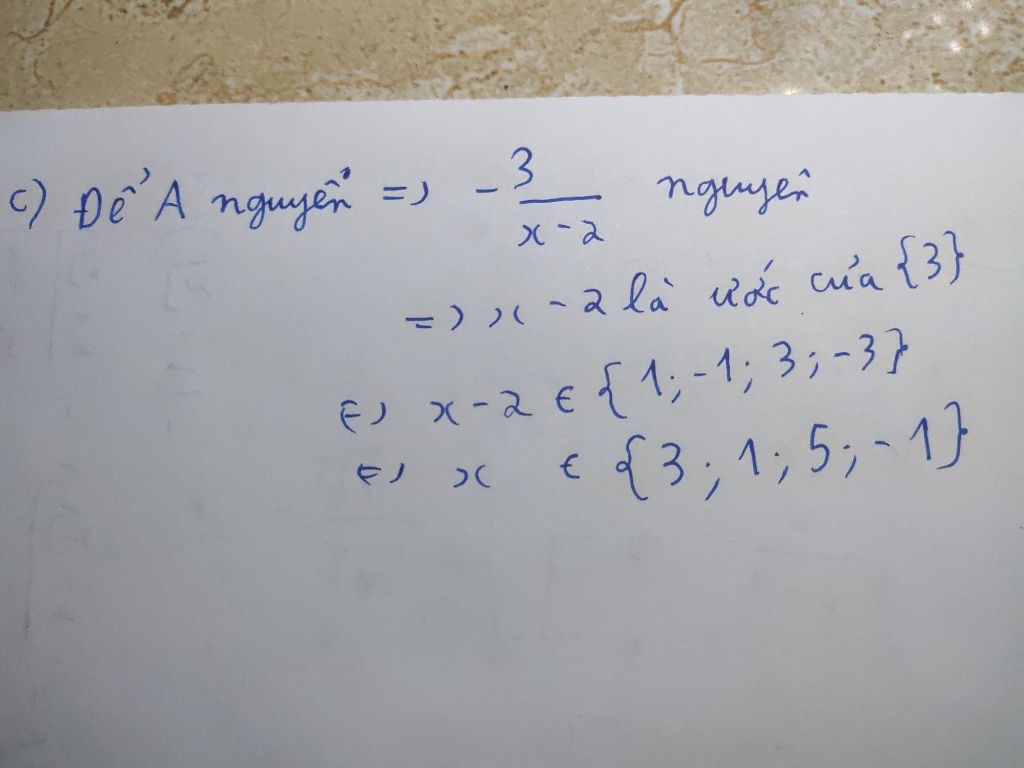 c) Để A nguyên => - 3/(x-2) nguyên
=> x - 2 là ước của {3}
<=> x - 2 ∈ {1; -1; 3; -3}
<=> x ∈ {3; 1; 5; -1}